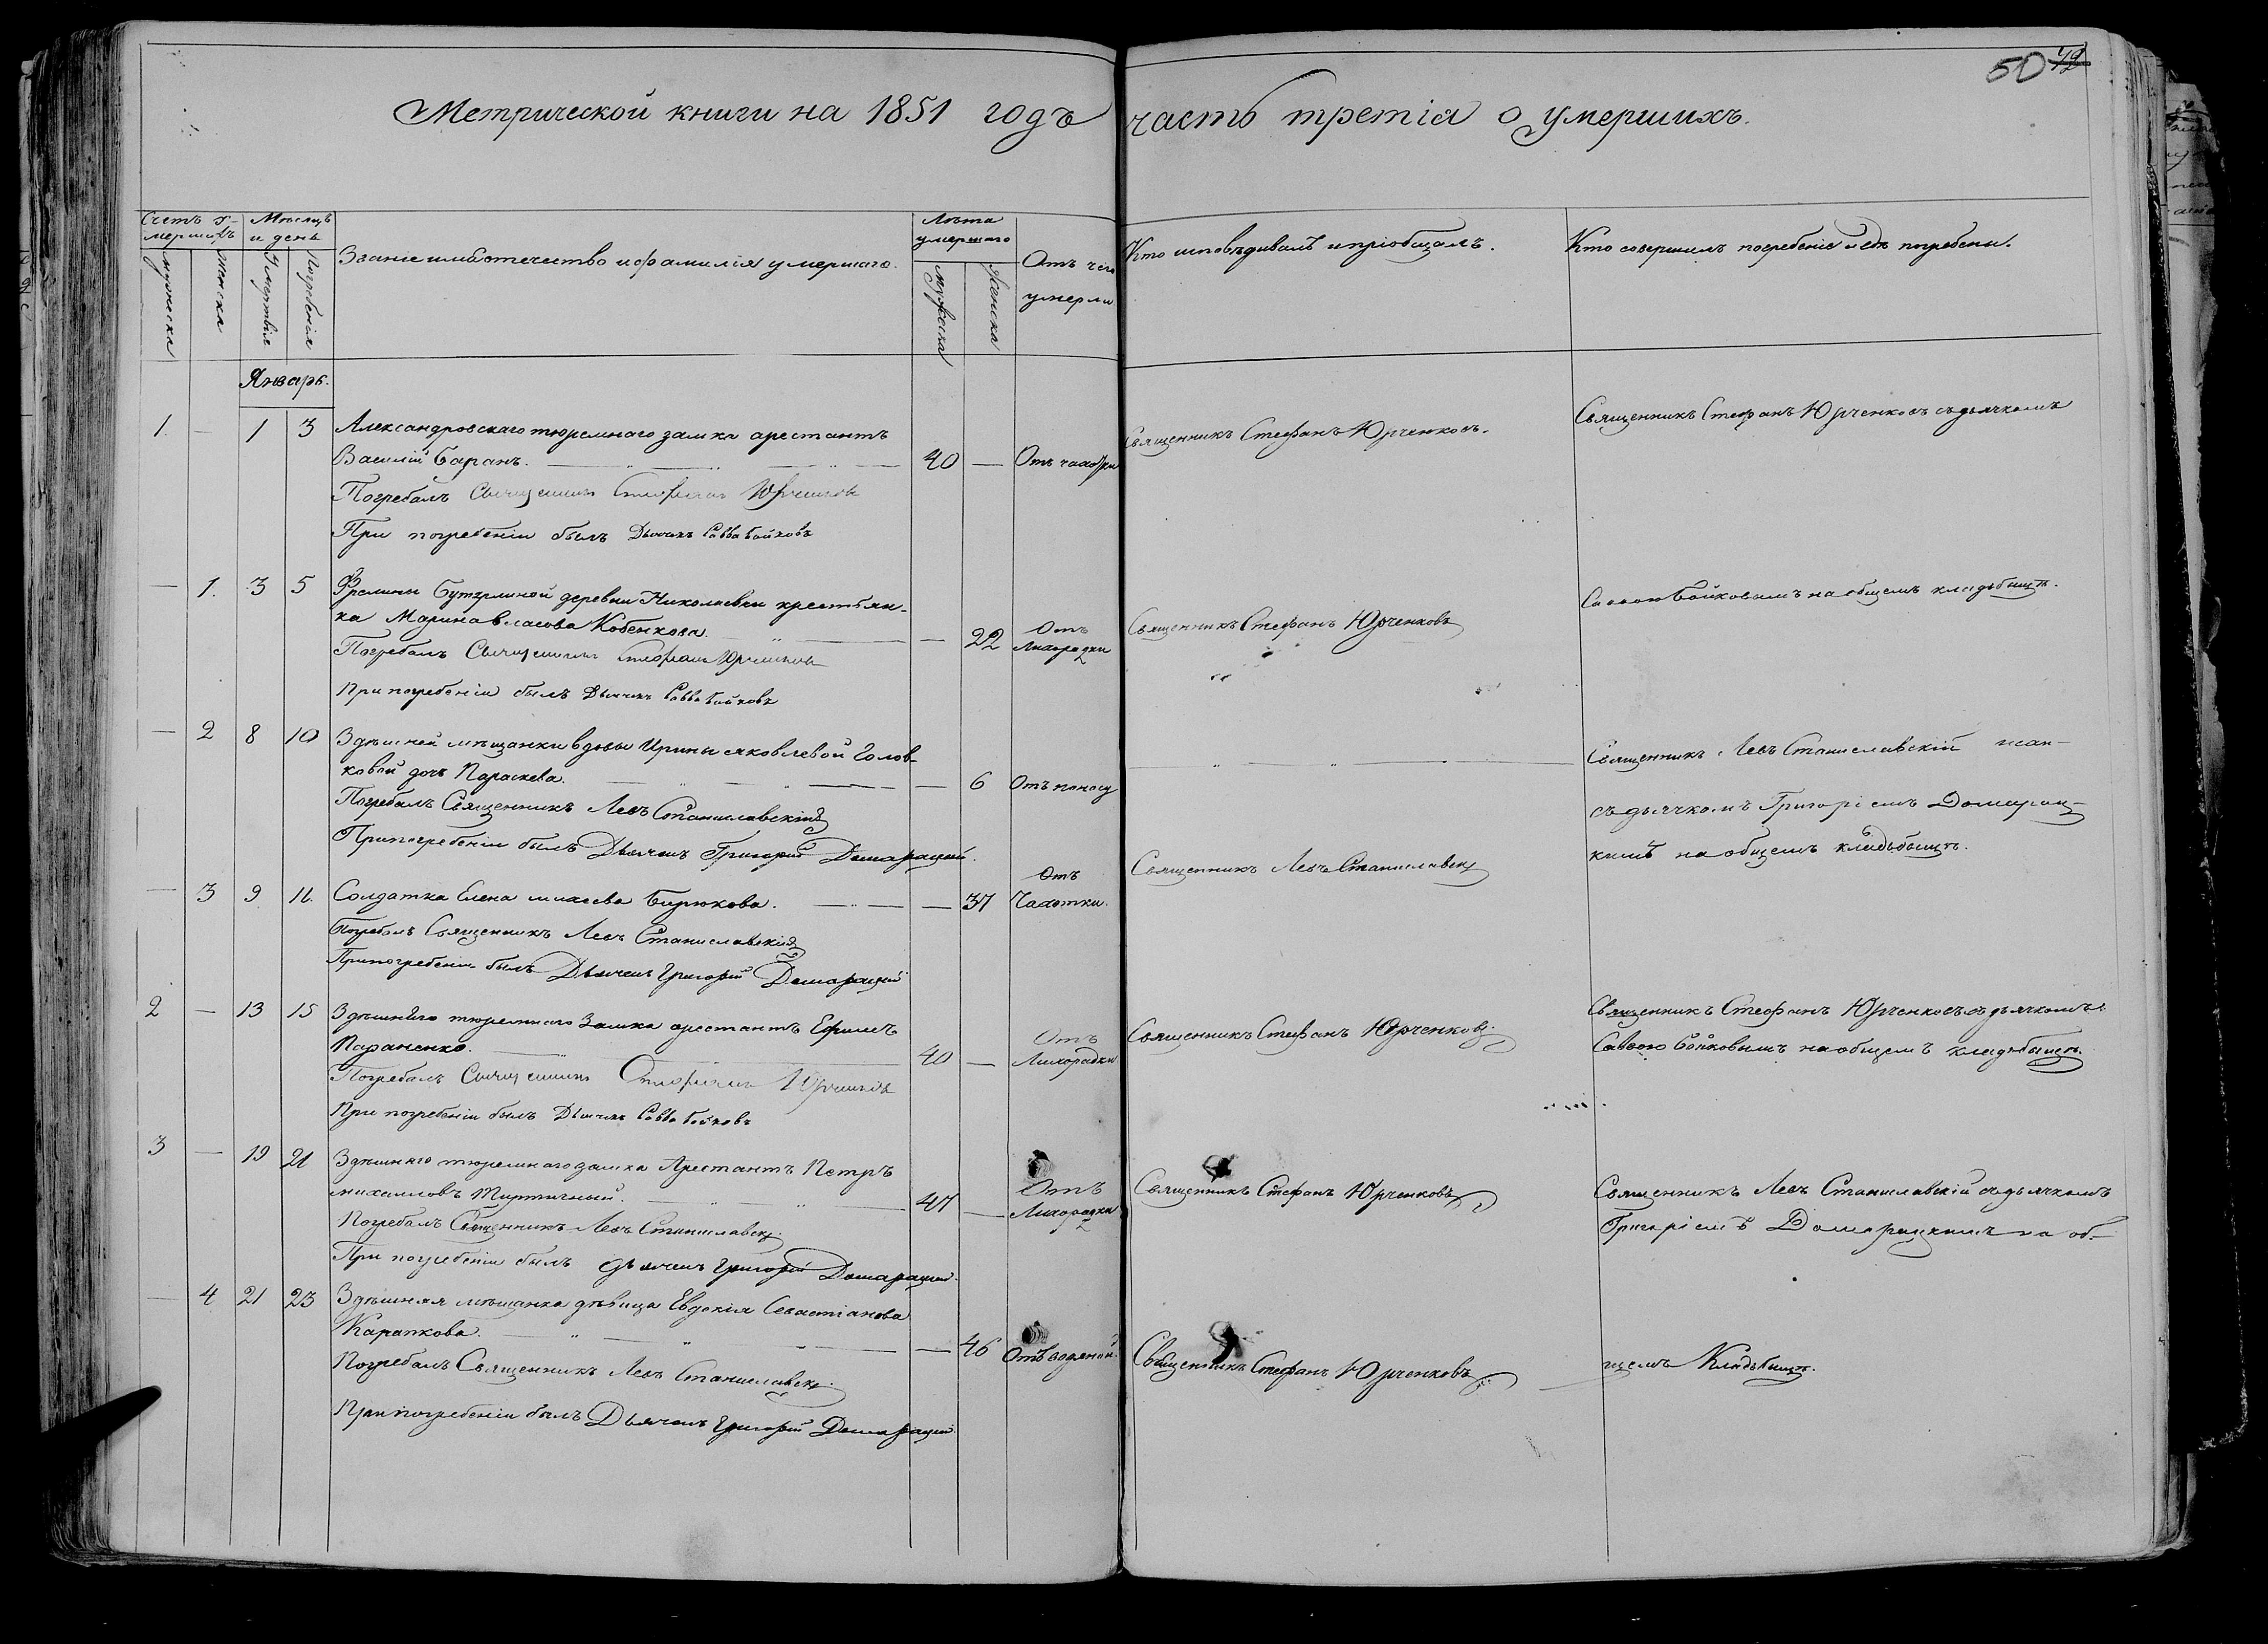 50 49
Метрической книги на 1851 годъ часть третіа о умершихъ.
Счетъ у-
мершихъ
мужеска
женска
Мѣсяцъ
и день
Умертвія
Погребенія
Званіе имя отечество и фамилія умершаго.
Лѣта
умершаго
мужеска
Женска
Отъ чего
умерли
Кто исповѣдывалъ и пріобщалъ.
Кто совершилъ погребеніе и гдѣ погребены.
Январь.
1. — 1 3 Александровскаго тюремнаго замка арестантъ
Василій Баранъ. 40 — Отъ чахотки
Священникъ Стефанъ Юрченковъ.
Священникъ Стефанъ Юрченковъ съ дьячкомъ
Погребалъ Священникъ Стефанъ Юрченковъ
При погребеніи былъ Дьячекъ Савва Бойковъ
— 1. 3 5 деревни Николаевки крестьян-
ка Марина Власова Кобенкова. — 22 Отъ
Лихорадки
Священникъ Стефанъ Юрченковъ
Саввою Бойковымъ на общемъ кладбищѣ.
Погребалъ Священникъ Стефанъ Юрченковъ
При погребеніи былъ Дьячекъ Савва Бойковъ
— 2 8 10 Здѣшней мѣщанки вдовы Ирины Яковлевой Голов-
ковой дочь Параскева. — 6 Отъ поносу
Священникъ Левъ Станиславскій
съ дьячкомъ Григоріемъ Домарац-
кимъ на общемъ кладбищѣ.
Погребалъ Священникъ Левъ Станиславскій
При погребеніи былъ Дьячекъ Григорій Домарацкій.
— 3 9 11. Солдатка Елена Бирюкова. — 37 Отъ
Чахотки.
Священникъ Левъ Станиславскій
Погребалъ Священникъ Левъ Станиславскій
При погребеніи былъ Дьячекъ Григорій Домарацкій
2 — 13 15 Здѣшняго тюремнаго Замка арестантъ Ефимъ
Параненко. 40 — Отъ
Лихорадки
Священникъ Стефанъ Юрченковъ.
Священникъ Стефанъ Юрченковъ съ дьячкомъ
Саввою Бойковымъ на общемъ кладбищѣ.
Погребалъ Священникъ Стефанъ Юрченковъ
При погребеніи былъ Дьячекъ Савва Бойковъ
3 — 19 21 Здѣшняго тюремнаго замка Арестантъ Петръ
михаиловъ 47 — Отъ
Лихорадки
Священникъ Стефанъ Юрченковъ
Священникъ Левъ Станиславскій съ дьячкомъ
Григоріемъ Домарацкимъ на об-
Погребалъ Священникъ Левъ Станиславскій
При погребеніи былъ дьячекъ Григорій Домарацкій.
— 4 21 23 Здѣшняя мѣщанка дѣвица Евдокія Севастіанова
Карапкова. — 46 Отъ водяной.
Священникъ Стефанъ Юрченковъ
щемъ Кладбищѣ.
Погребалъ Священникъ Левъ Станиславскій
При погребеніи былъ Дьячекъ Григорій Домарацкій